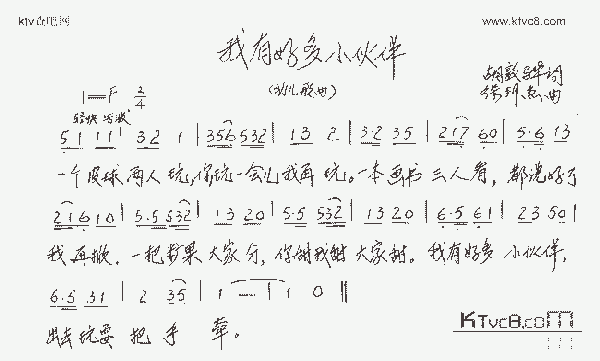 www.ktvc8.com
我有好多小伙伴
(幼儿歌曲)
1=F 2/4
51 11 | 32 1 | 356 532 | 13 2 | 32 35 | 217 60 | 5·6 13
一个皮球两人玩,你玩一会儿我再玩。一本画书三人看,都说好了
21610 | 5·5 532 | 13 20 | 5·5 532 | 13 20 | 6·5 61 | 23 50 |
我再掀。一把苹果大家分,你甜我甜大家甜。我有好多小伙伴,
6·5 31 | 2 35 | 1 — | 1 0 ‖
出去玩要把手牵。
KTvc8.com